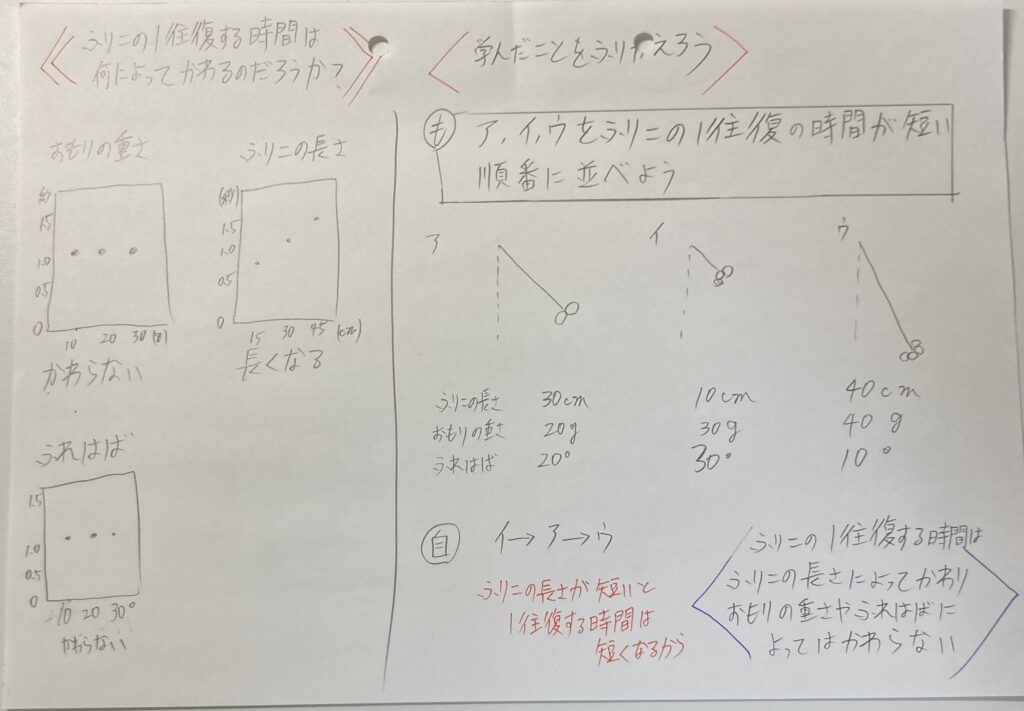 ふりこの1往復する時間は
何によってかわるのだろうか?
おもりの重さ
(秒)
1.5
1.0
0.5
0
10 20 30 (g)
かわらない
ふりこの長さ
(秒)
1.5
1.0
0.5
0
15 30 45 (cm)
長くなる
ふれはば
1.5
1.0
0.5
0
10 20 30°
かわらない
学んだことをふりかえろう
も ア,イ,ウをふりこの1往復の時間が短い
順番に並べよう
ア イ ウ
ふりこの長さ 30cm 10cm 40cm
おもりの重さ 20g 30g 40g
ふれはば 20° 30° 10°
自 イ→ア→ウ
ふりこの長さが短いと
1往復する時間は
短くなるから
ふりこの1往復する時間は
ふりこの長さによってかわり
おもりの重さやふれはばに
よってはかわらない